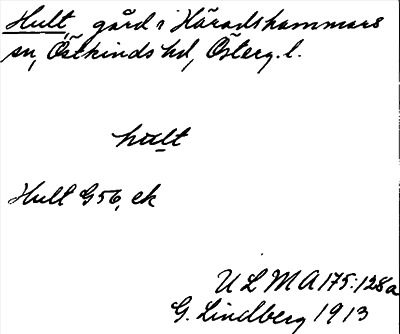 Hult, gård i Häradshammars
sn, Östkinds hd, Österg. l.
hult
Hult G56, ek
ULMA 175:128a
G. Lindberg 1913